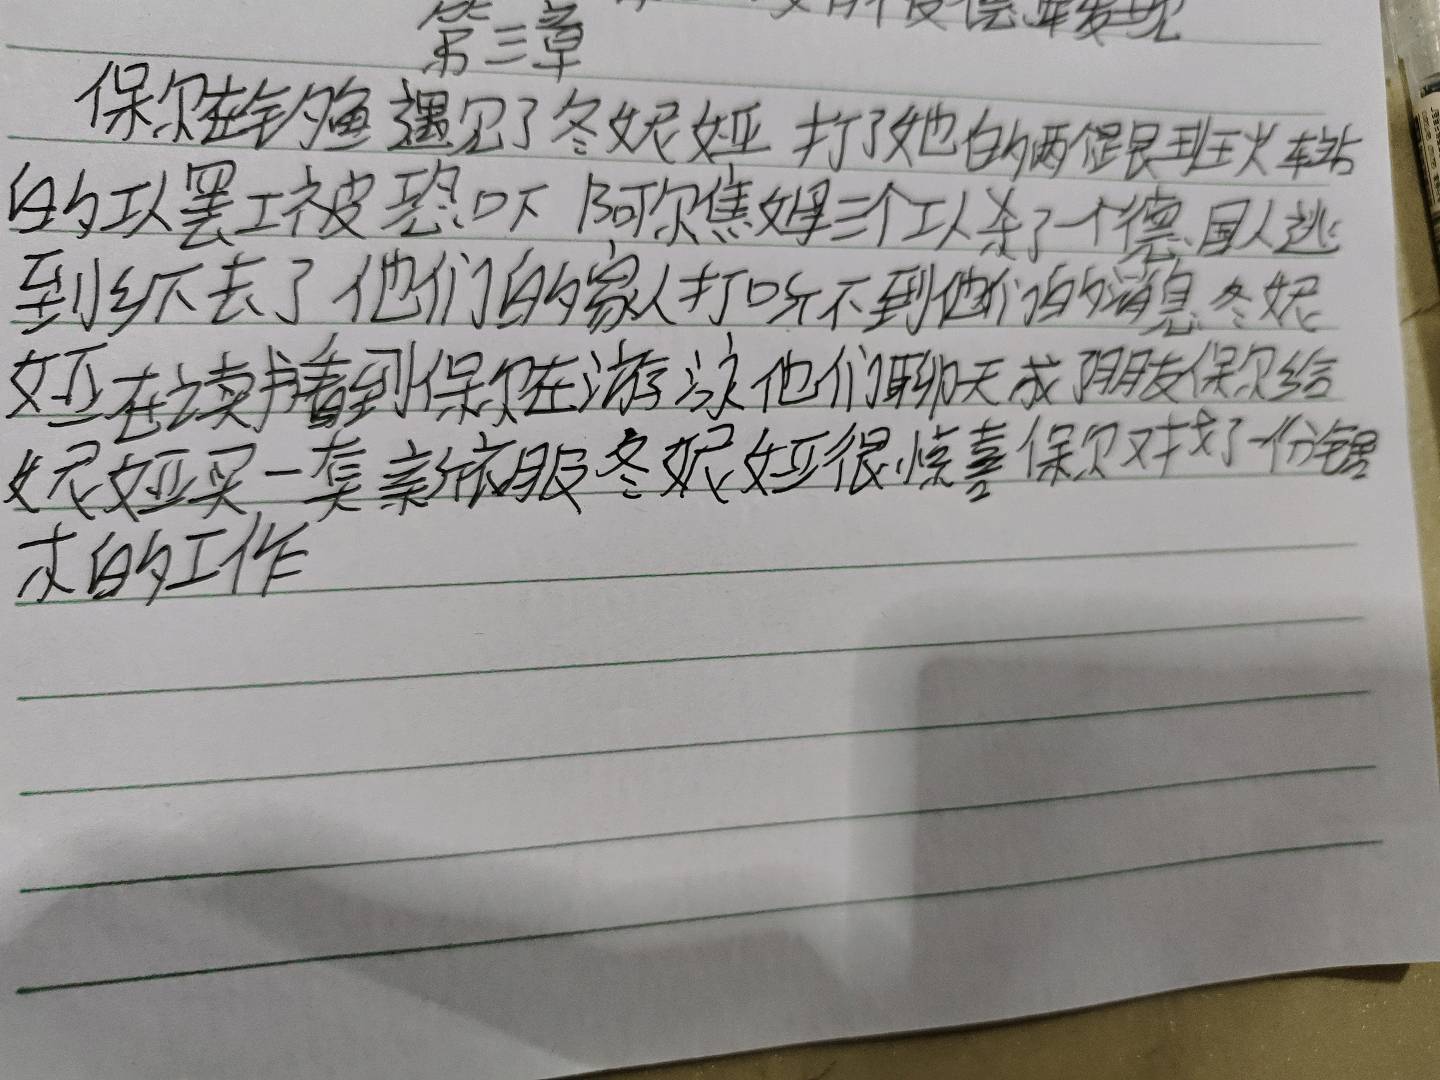 第三章
保尔在钓鱼遇见了冬妮娅 打了她的两个跟班火车站
的工人罢工被恐吓 阿尔焦姆三个工人杀了一个德国人逃
到乡下去了他们的家人打听不到他们的消息冬妮
娅在读书看到保尔在游泳他们聊天成了朋友保尔给
妮娅买一套新衣服冬妮娅很惊喜保尔又找了一份锯
木的工作